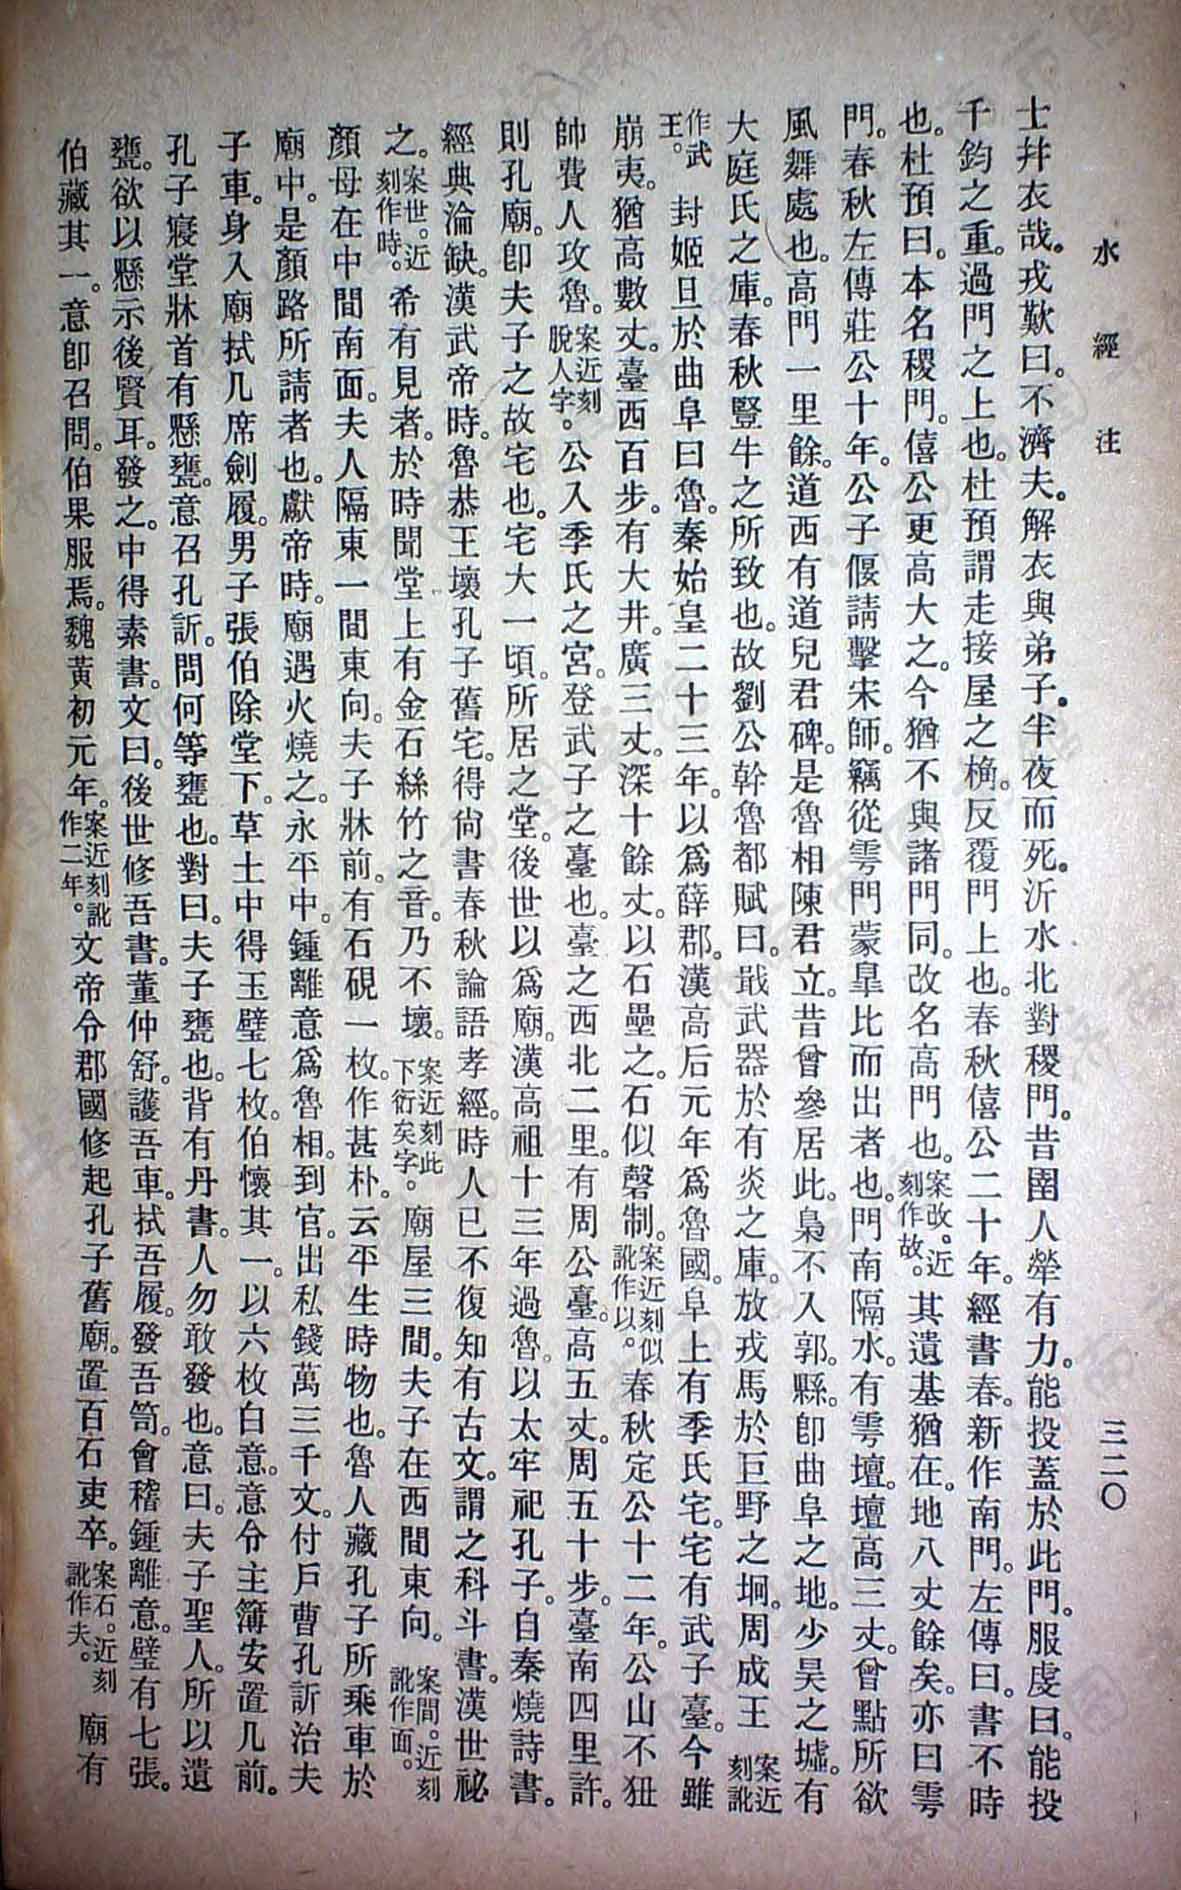 水經注
三二〇
士井衣哉。戎歎曰。不濟夫。解衣與弟子。半夜而死。沂水北對稷門。昔圉人犖有力。能投蓋於此門。服虔曰。能投
千鈞之重。過門之上也。杜預謂走接屋之桷。反覆門上也。春秋僖公二十年。經書春。新作南門。左傳曰。書不時
也。杜預曰。本名稷門。僖公更高大之。今猶不與諸門同。改名高門也。案改。近刻作故。其遺基猶在。地八丈餘矣。亦曰雩
門。春秋左傳莊公十年。公子偃請擊宋師。竊從雩門蒙皐比而出者也。門南隔水。有雩壇。壇高三丈。曾點所欲
風舞處也。高門一里餘。道西有道兒君碑。是魯相陳君立。昔曾參居此。梟不入郭。縣。卽曲阜之地。少昊之墟。有
大庭氏之庫。春秋豎牛之所致也。故劉公幹魯都賦曰。戢武器於有炎之庫。放戎馬於巨野之坰。周成王案近刻訛
作武王。封姬旦於曲阜曰魯。秦始皇二十三年。以爲薛郡。漢高后元年爲魯國。阜上有季氏宅。宅有武子臺。今雖
崩夷。猶高數丈。臺西百步。有大井。廣三丈。深十餘丈。以石壘之。石似磬制。案近刻似訛作以。春秋定公十二年。公山不狃
帥費人攻魯。案近刻脫人字。公入季氏之宮。登武子之臺也。臺之西北二里。有周公臺。高五丈。周五十步。臺南四里許。
則孔廟。卽夫子之故宅也。宅大一頃。所居之堂。後世以爲廟。漢高祖十三年過魯。以太牢祀孔子。自秦燒詩書。
經典淪缺。漢武帝時。魯恭王壞孔子舊宅。得尙書春秋論語孝經。時人已不復知有古文。謂之科斗書。漢世祕
之。案世。近刻作時。希有見者。於時聞堂上有金石絲竹之音。乃不壞。案近刻此下衍矣字。廟屋三間。夫子在西間東向。案間。近刻訛作面。
顏母在中間南面。夫人隔東一間東向。夫子牀前。有石硯一枚。作甚朴。云平生時物也。魯人藏孔子所乘車於
廟中。是顏路所請者也。獻帝時。廟遇火燒之。永平中。鍾離意爲魯相。到官。出私錢萬三千文。付戶曹孔訢治夫
子車。身入廟拭几席劍履。男子張伯除堂下。草土中得玉璧七枚。伯懷其一。以六枚白意。意令主簿安置几前。
孔子寢堂牀首有懸甕。意召孔訢。問何等甕也。對曰。夫子甕也。背有丹書。人勿敢發也。意曰。夫子聖人。所以遺
甕。欲以懸示後賢耳。發之。中得素書。文曰。後世修吾書。董仲舒。護吾車。拭吾履。發吾笥。會稽鍾離意。璧有七張。
伯藏其一。意卽召問。伯果服焉。魏黃初元年。案近刻訛作二年。文帝令郡國修起孔子舊廟。置百石吏卒。案石。近刻訛作夫。廟有